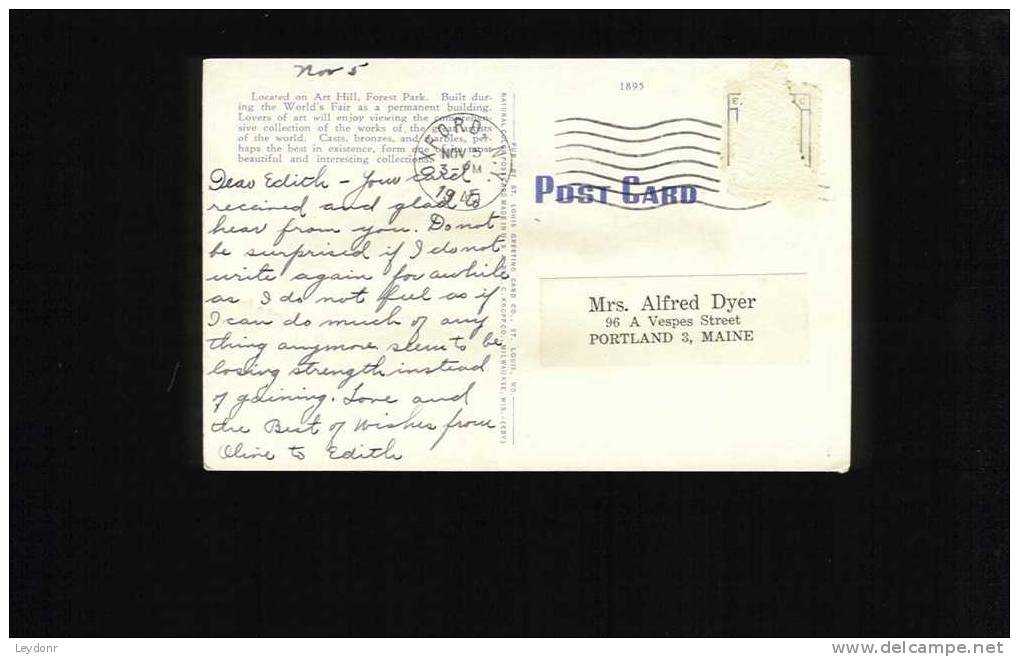 Nov 5
Located on Art Hill, Forest Park. Built dur-
ing the World's Fair as a permanent building.
Lovers of art will enjoy viewing the comprehen-
sive collection of the works of the great artists
of the world. Casts, bronzes, and marbles, per-
haps the best in existence, form one of the most
beautiful and interesting collections.
Dear Edith - Your card
received and glad to
hear from you. Do not
be surprised if I do not
write again for awhile
as I do not feel as if
I can do much of any
thing anymore seem to be
losing strength instead
of gaining. Love and
the Best of Wishes from
Olive to Edith
PUB. BY ST. LOUIS GREETING CARD CO., ST. LOUIS, MO.
1895
NOV 5
3-PM
1945
POST CARD
Mrs. Alfred Dyer
96 A Vespes Street
PORTLAND 3, MAINE
Leydonr
delcampe.net